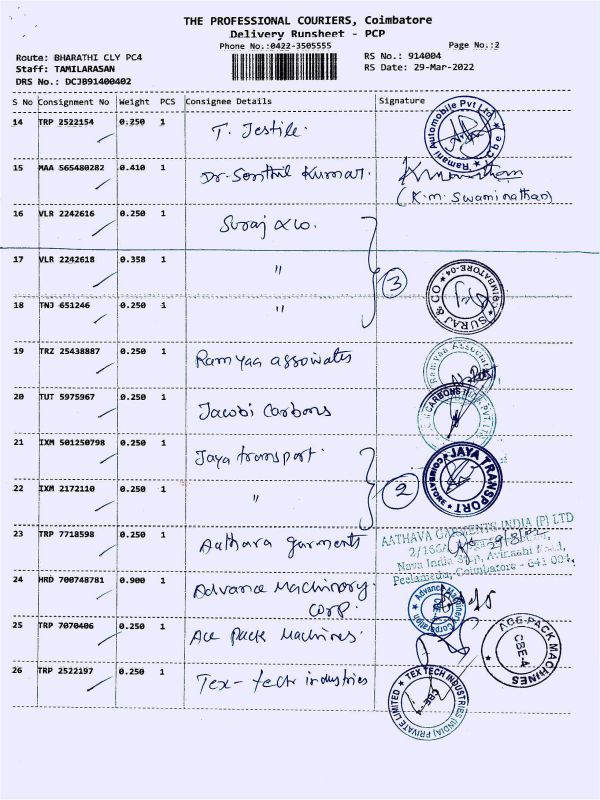 THE PROFESSIONAL COURIERS, Coimbatore
Delivery Runsheet - PCP
Phone No.:0422-3505555 Page No.:2
Route: BHARATHI CLY PC4 RS No.: 914004
Staff: TAMILARASAN RS Date: 29-Mar-2022
DRS No.: DCJB91400402
S No Consignment No Weight PCS Consignee Details Signature
14 TRP 2522154 0.250 1 T. Jestile. Ramani Automobile Pvt Ltd Cbe
15 MAA 565480282 0.410 1 Dr. Senthil Kumar.
(K.m. Swaminathan)
16 VLR 2242616 0.250 1 Suraj & Co.
17 VLR 2242618 0.358 1 "
3
SURAJ & CO COIMBATORE-04
18 TNJ 651246 0.250 1 "
19 TRZ 25438887 0.250 1 Ramyaa associates Ramyaa Associates
20 TUT 5975967 0.250 1 Jacobi Carbons CARBONS PVT LTD
21 IXM 501250798 0.250 1 Jaya transport. JAYA TRANSPORT COIMBATORE
22 IXM 2172110 0.250 1 " 2
23 TRP 7718598 0.250 1 Aathava garments AATHAVA GARMENTS INDIA (P) LTD
Nava India Avinashi
Peelamedu, Coimbatore - 641 004.
24 HRD 700748781 0.900 1 Advance Machinery Corp. Advance Machinery Corporation
25 TRP 7070406 0.250 1 Ace Pack Machines. ACE-PACK MACHINES CBE-4
26 TRP 2522197 0.250 1 Tex-tech industries TEX TECH INDUSTRIES (INDIA) PRIVATE LIMITED CBE-4